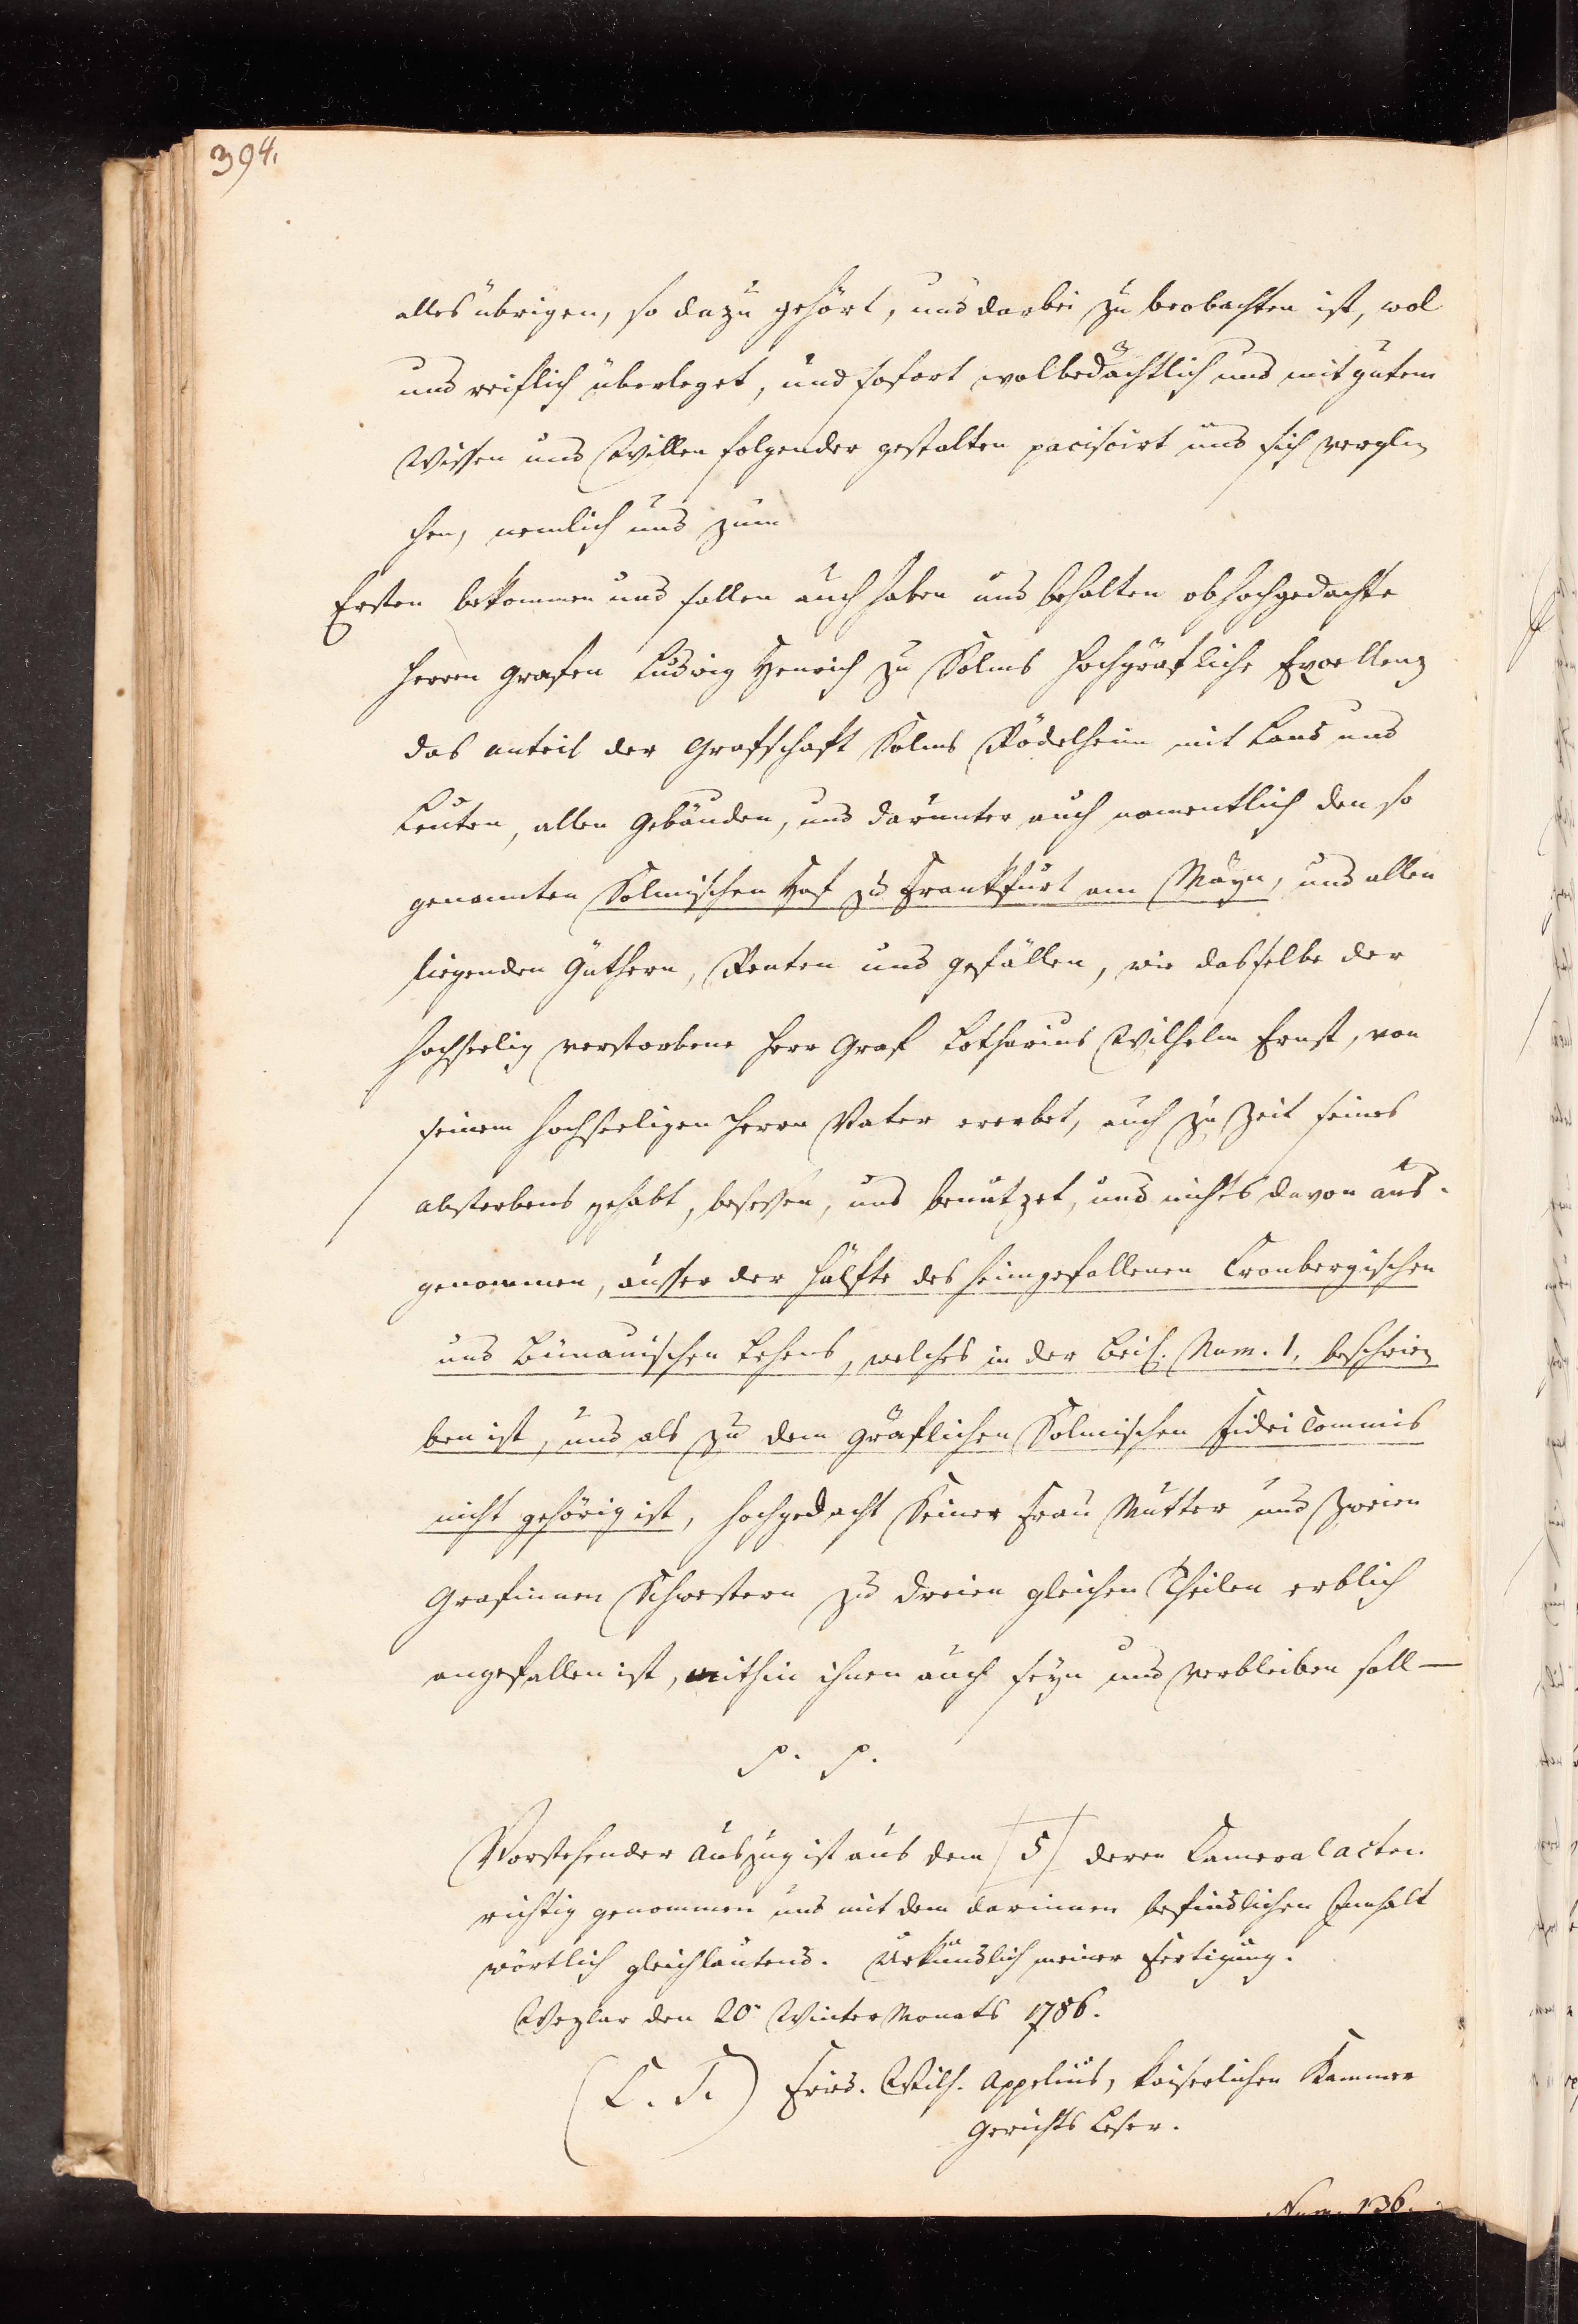 394.
alles übrigen, so dazu gehört, und darbei zu beobachten ist, wol
und reiflich überleget, und sofort wolbedächtlich und mit gutem
Wissen und Willen folgender gestalten paciscirt und sich vergli
chen, nemlich und zum
Ersten bekommen und sollen auch haben und behalten obhochgedachte
Herrn Grafen Ludwig Henrich zu Solms Hochgräfliche Excellenz
das anteil der Grafschaft Solms Rödelheim mit Land und
Leuten, allen Gebäuden, und darunter auch namentlich den so
genannten Solmischen Hof zu Frankfurt am Mäyn, und allen
liegenden Güthern, Renten und gefällen, wie dasselbe der
hochseelig verstorbene Herr Graf Lotharius Wilhelm Ernst, von
seinem hochseeligen Herrn Vater ererbet, auch zu Zeit seines
absterbens gehabt, besessen, und benutzet, und nichts davon aus-
genommen, ausser der Hälfte des heimgefallenen Cronbergischen
und Bünauischen Lehens, welches in der Beil. Num. 1. beschrie
ben ist, und als zu dem Gräflichen Solmischen Fidei Commis
nicht gehörig ist, hochgedacht Seiner Frau Mutter und zweien
Grafinnen Schwestern zu dreien gleichen Theilen erblich
angefallen ist, mithin ihnen auch seyn und verbleiben soll —
p. p.
Vorstehender Auszug ist aus dem [5] deren Kameralacten
richtig genommen und mit dem darinnen befindlichen Innhalt
wörtlich gleichlautend. Urkundlich meiner Fertigung.
Wezlar den 20. WinterMonats 1786.
(L. S.) Fried. Wilh. Appelius, Kaiserlichen Kammer
Gerichts Leser.
Num. 136.